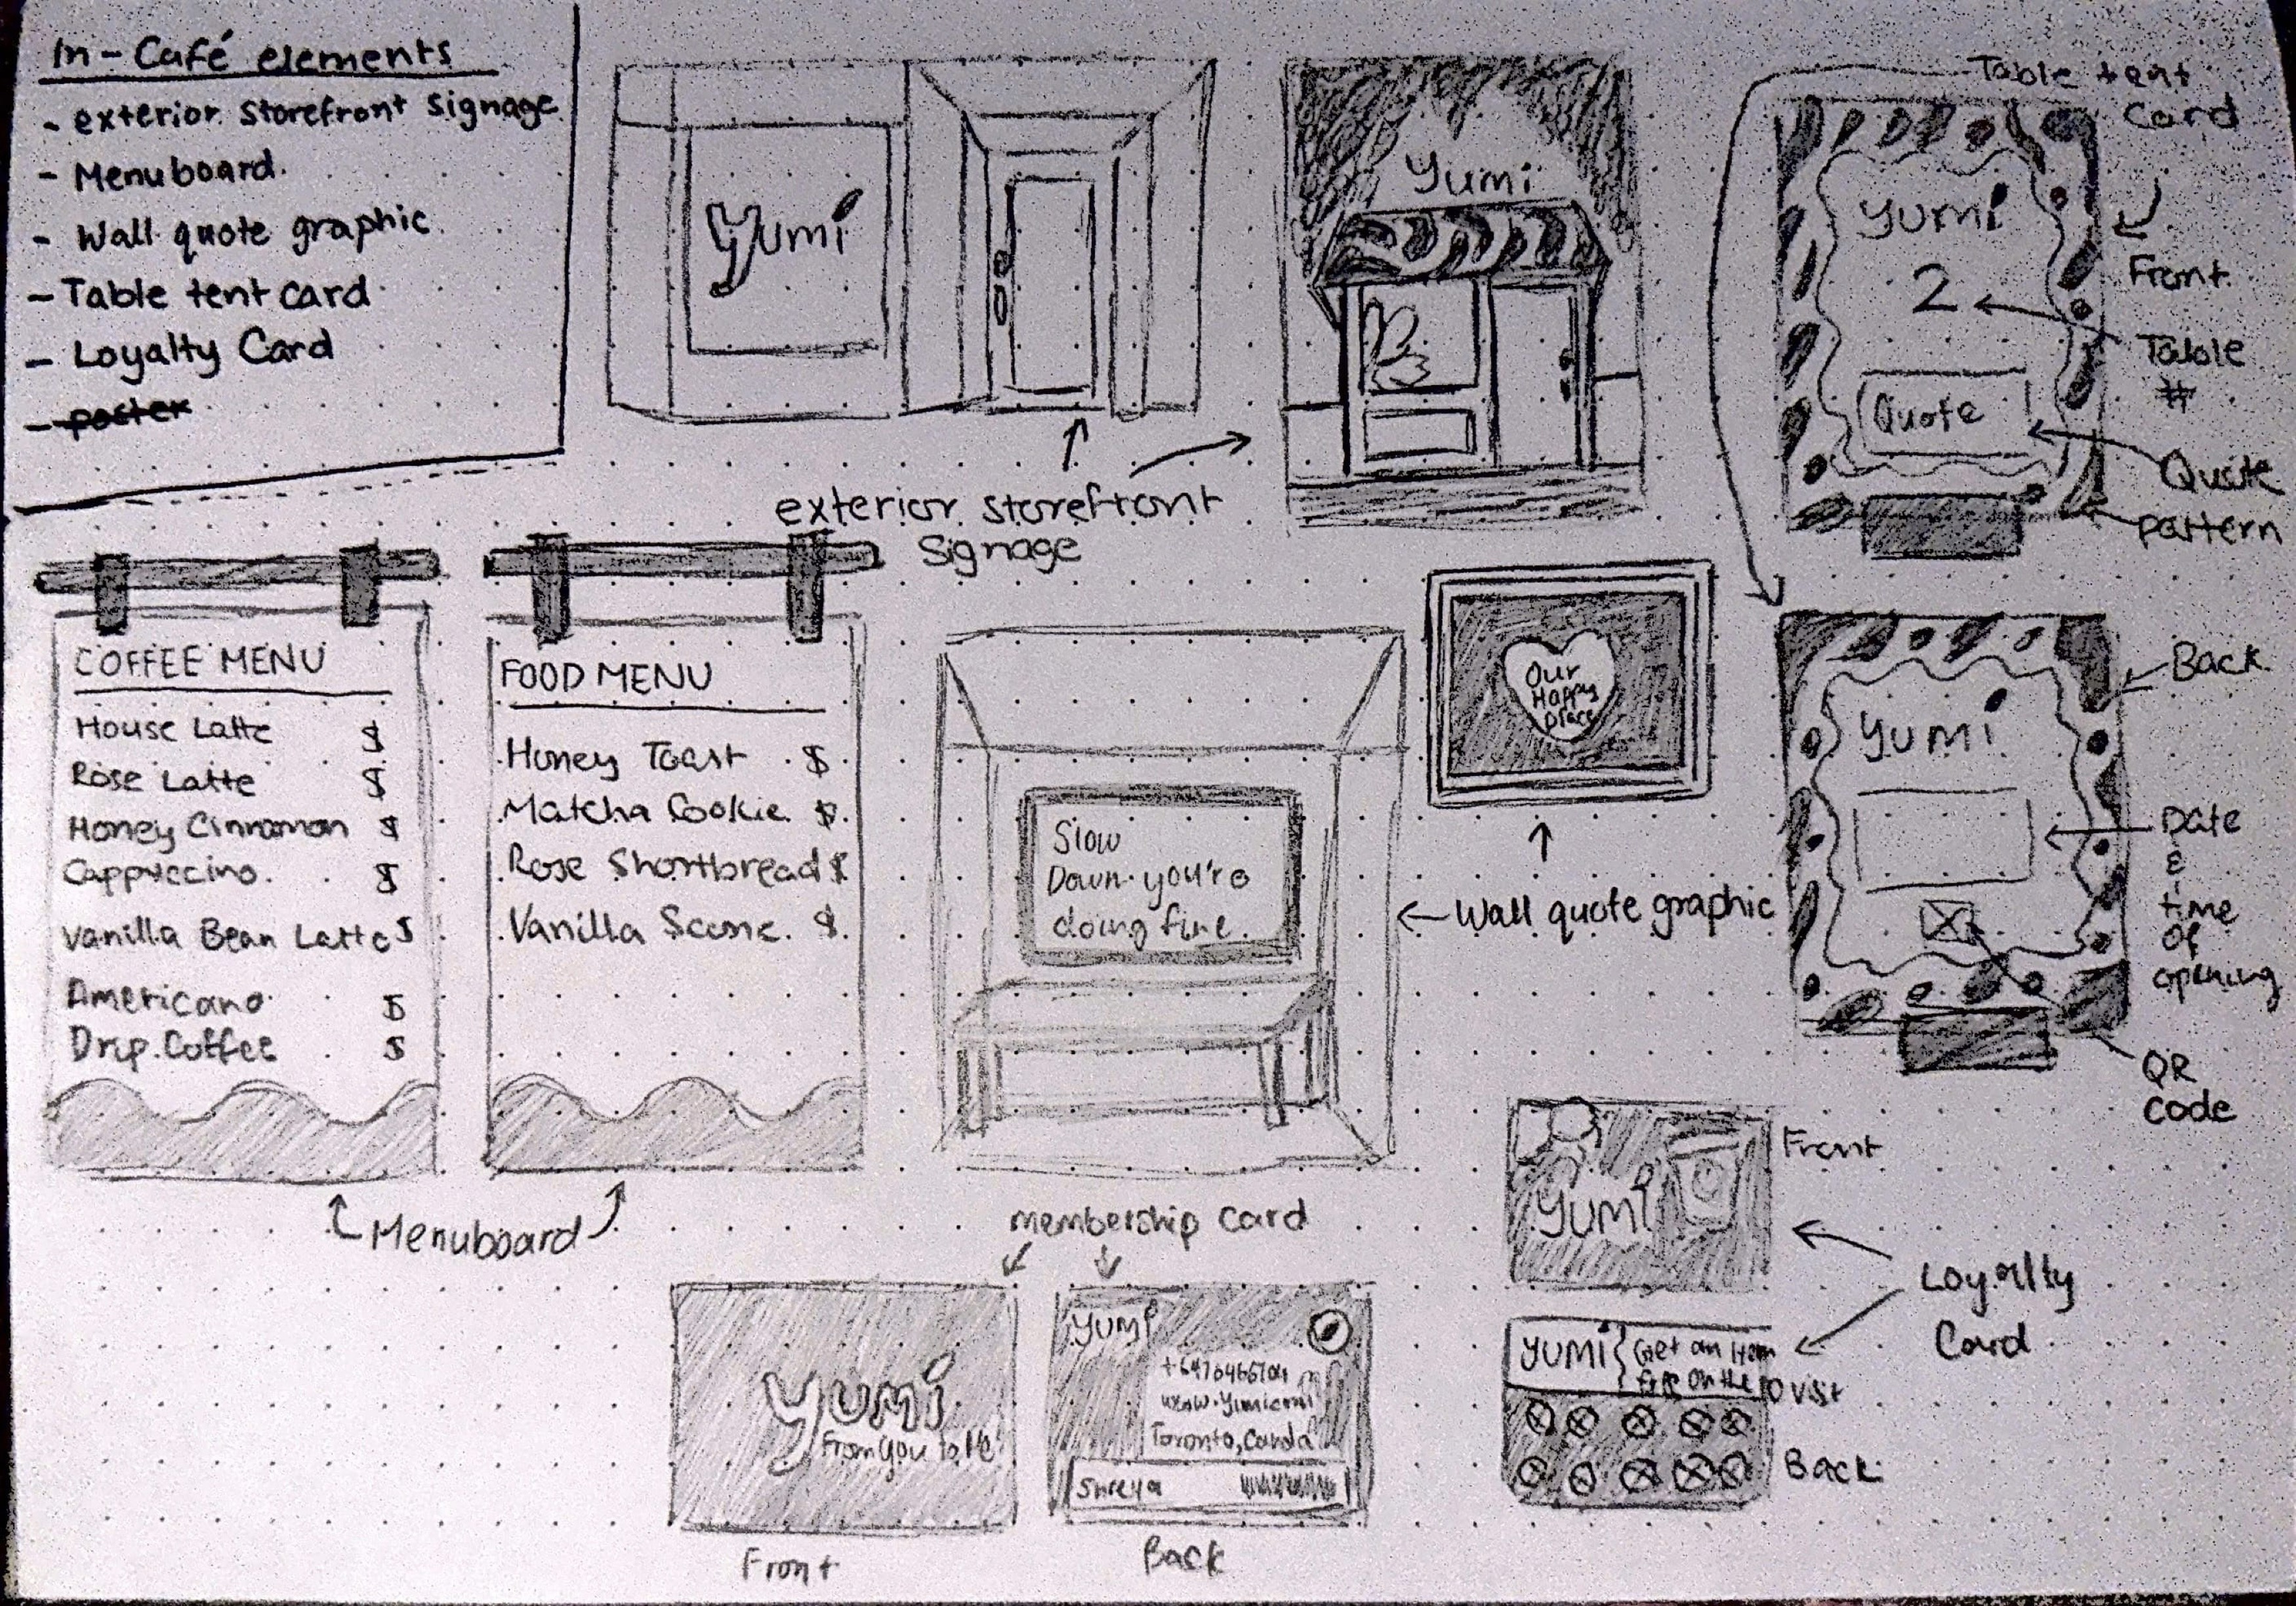 In-Café elements
- exterior storefront signage
- Menuboard.
- Wall quote graphic.
- Table tent card
- Loyalty Card
- poster
Yumi
Yumi
exterior storefront
Signage
Table tent
Card
Front
Yumi
2
Table
#
Quote
Quote
pattern
COFFEE MENU
House Latte $
Rose Latte $
Honey Cinnamon $
Cappuccino. $
Vanilla Bean Latte $
Americano $
Drip Coffee $
FOOD MENU
Honey Toast $
Matcha Cookie $
Rose Shortbread $
Vanilla Scone $
Menuboard
Slow
Down you're
doing fine.
Our
Happy
place
Wall quote graphic
Back
Yumi
Date
&
time
of
opening
QR
Code
membership Card
Yumi
From you to Me
Front
Yumi
Toronto,
Shreya
Back
Front
Yumi
Loyalty
Card
Yumi Get an item
free on the 10 visit
Back